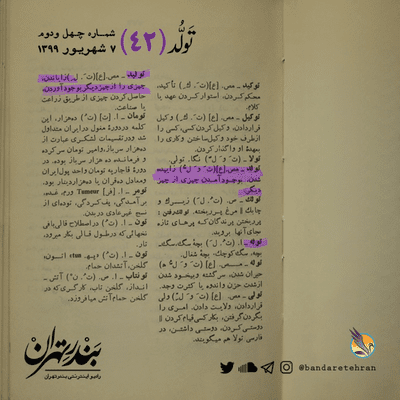 تَولُّد (۴۲)
شماره چهل و دوم
۷ شهریور ۱۳۹۹
توکید ـ مص. [ع] (تَ. کِ) تأکید،
محکم کردن، استوار کردن عهد یا
کلام.
توکیل ـ مص. [ع] (تَ. کِ) وکیل
قرار دادن، وکیل کردن کسی، کسی را
از طرف خود وکیل ساختن و کاری را
بعهدهٔ او واگذار کردن.
تولا ـ (تَ. وَ لّ) نگا. تولی.
تولد ـ مص. [ع] (تَ وَ لُّ) زاییده
شدن، بوجود آمدن چیزی از چیز
دیگر.
تولک ـ ص. (تُ. لَ) زیرک و
چابک || مرغ پر ریخته. تولک رفتن:
پر ریختن پرندگان که پرهای تازه
بجای آنها بروید.
توله ـ ا. (تُ. لَ) بچهٔ سگ، سگ
بچه، سگ کوچک، بچهٔ شغال.
توله ـ مص. [ع] (تَ وَ لُّ ه)
حیران شدن، سرگشته و بیخود شدن
از شدت حزن و اندوه یا کثرت وجد.
تولی ـ مص. [ع] (تَ وَ لّ) ولی
قرار دادن، ولایت دادن، امری را
بگردن گرفتن، بکار کسی قیام کردن ||
دوستی کردن، دوستی داشتن، در
فارسی تولا هم میگویند.
تولید ـ مص. [ع] (تَ. لِ) زایاندن،
چیزی را از چیز دیگر بوجود آوردن،
حاصل کردن چیزی از طریق زراعت
یا صناعت.
تومان ـ ا. [ت] (تُ) ده هزار، این
کلمه در دورهٔ مغول در ایران متداول
شد و در تقسیمات لشکری عبارت از
ده هزار سرباز، و امیر تومان سرکرده
و فرمانده ده هزار سرباز بوده، در
دورهٔ قاجاریه تومان واحد پول ایران
و معادل ده قران یا ده هزار دینار بود.
تومر ـ ا. [فر] Tumeur ورم، غده،
برآمدگی، پف کردگی، توده‌ای از
نسج غیرعادی در بدن.
تون ـ ا. (تُ) در اصطلاح قالی‌بافی
نخهائی که در طول قالی بکار میرود،
تار.
تون ـ ا. (تُ)
گلخن، آتشدان حمام.
تون تاب ـ ا. ص. (تُ. ن) آتش
انداز، گلخن تاب، کارگری که در
گلخن حمام آتش میافروزد.
بندر تهران
رادیو اینترنتی بندر تهران
@bandaretehran